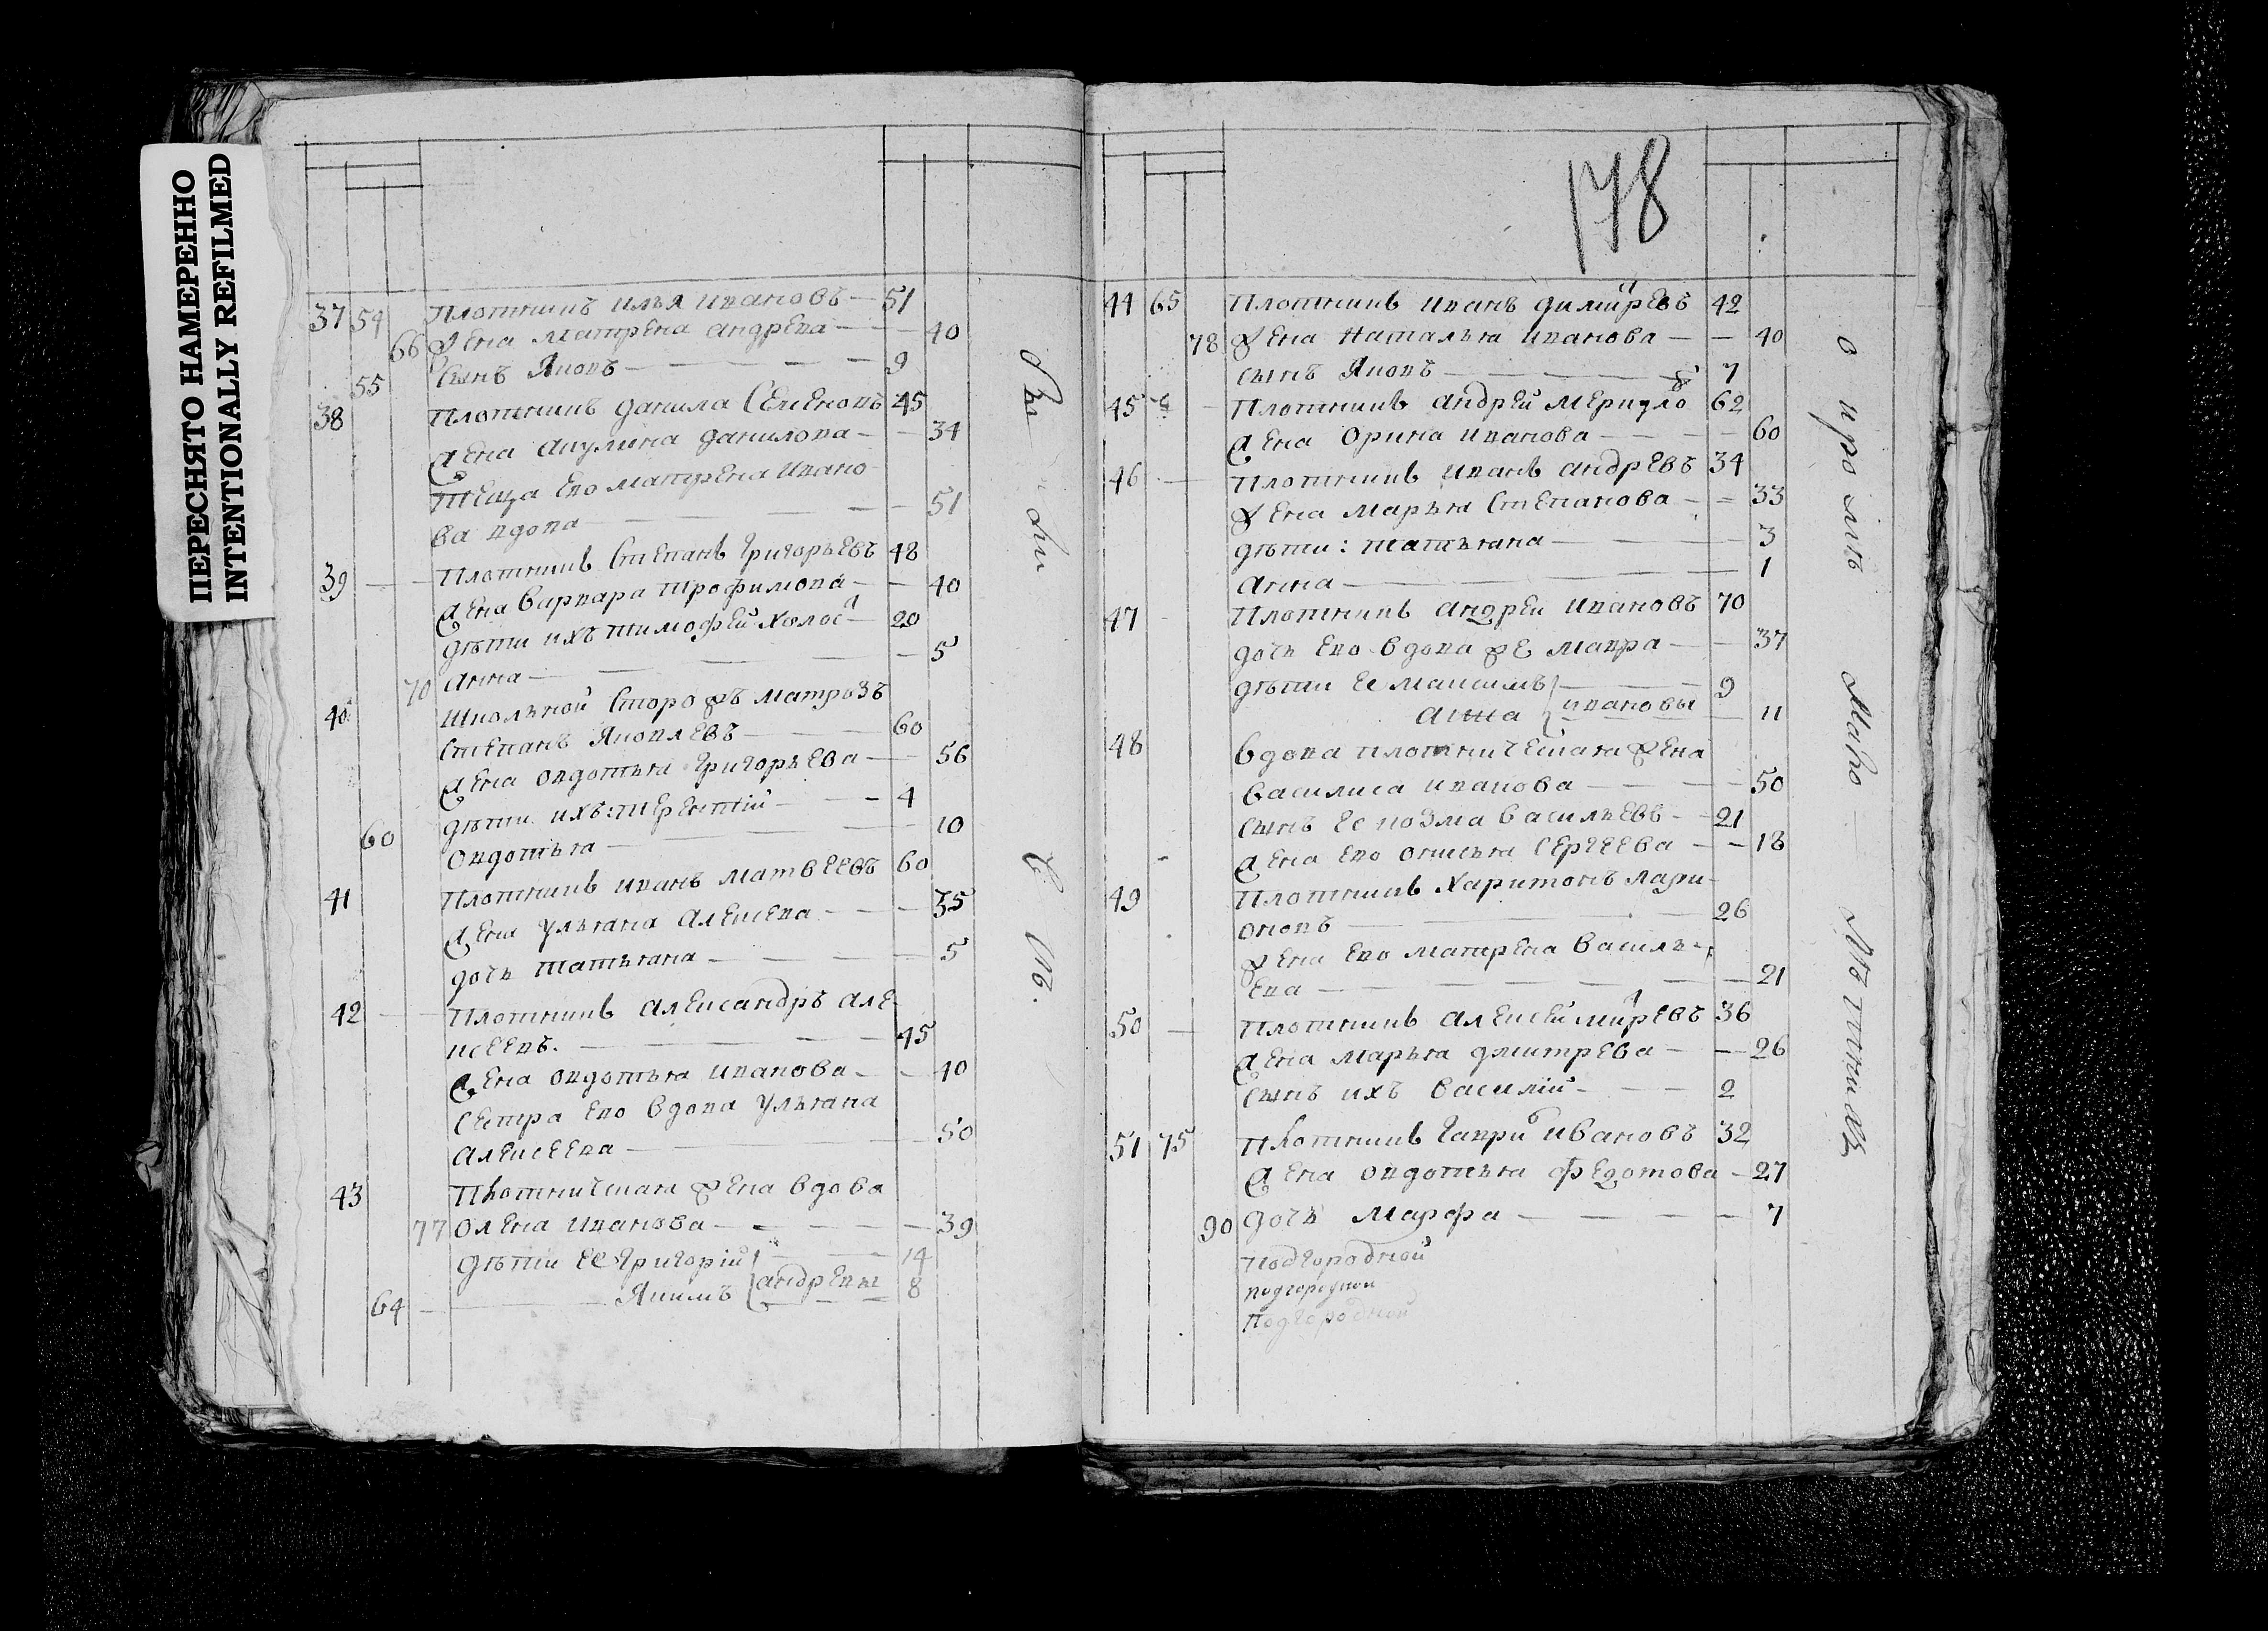 ПЕРЕСНЯТО НАМЕРЕННО
INTENTIONALLY REFILMED
37 54 Плотникъ илья ивановъ — 51
66 Жена матрена андрева — 40
55 Сынъ Яковъ — 9
38 Плотникъ данила Семеновъ 45
Жена акулина данилова — 34
теща ево матрена ивано
ва вдова — 51
39 Плотникъ Степанъ григорьевъ 48
Жена варвара трофимова — 40
дѣти ихъ тимофей холос — 20
70 анна — 5
40 Школьной сторожъ матрозъ
Степанъ Яковлевъ — 60
Жена овдотья григорьева — 56
дѣти ихъ: терентий — 4
60 Овдотья — 10
41 Плотникъ иванъ матвеевъ 60
Жена ульяна алексева — 35
дочь татьяна — 5
42 Плотникъ александръ але
ксеевъ. — 45
Жена овдотья иванова — 40
Сестра ево вдова ульяна
алексеева — 50
43 Плотничская жена вдова
77 олена иванова — 39
дѣти ее григорій — 14
64 Якимъ андревы 8
178
44 65 Плотникъ иванъ димитревъ 42
78 Жена наталья иванова — 40
сынъ Яковъ — 7
45 Плотникъ андрей 62
Жена орина иванова — 60
46 Плотникъ иванъ андревъ 34
Жена марья степанова — 33
дѣти: татьяна — 3
анна — 1
47 Плотникъ андрей ивановъ 70
дочь ево вдова же мавра — 37
дѣти ее максимъ — 9
анна ивановы 11
48 Вдова плотническая жена
василиса иванова — 50
сынъ ее козма васильевъ — 21
Жена ево оксинья сергеева — 18
49 Плотникъ харитонъ лари-
оновъ — 26
Жена ево матрена василь-
ева — 21
50 Плотникъ алексей митревъ 36
Жена марья дмитрева — 26
Сынъ ихъ василій — 2
51 75 Плотникъ гаври ивановъ 32
Жена овдотья федотова — 27
90 дочь марфа — 7
подгородной
подгородной
подгородной